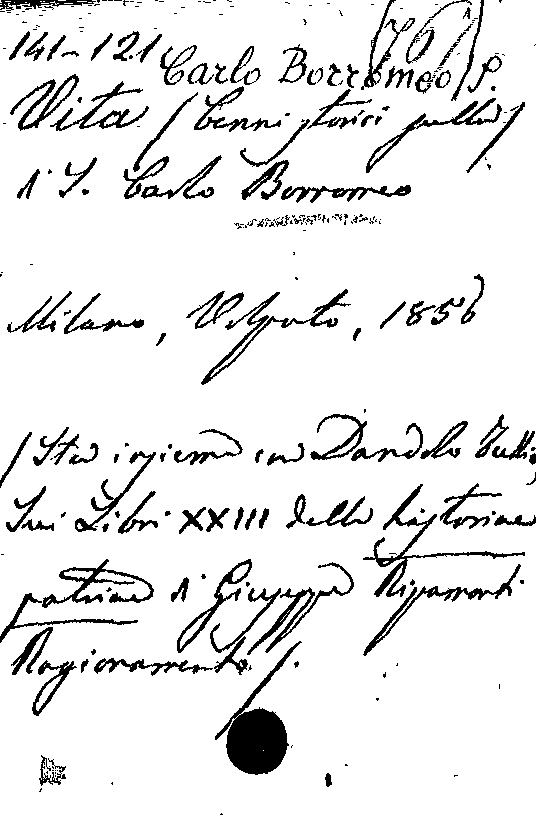 141-121 Carlo Borromeo, S.
Vita / Cenni storici sulla /
di S. Carlo Borromeo
Milano, Volpato, 1856
/ Sta insieme con Dandolo Tullio,
Sui Libri XXIII della historiae
patriae di Giuseppe Ripamonti
Ragionamento /.